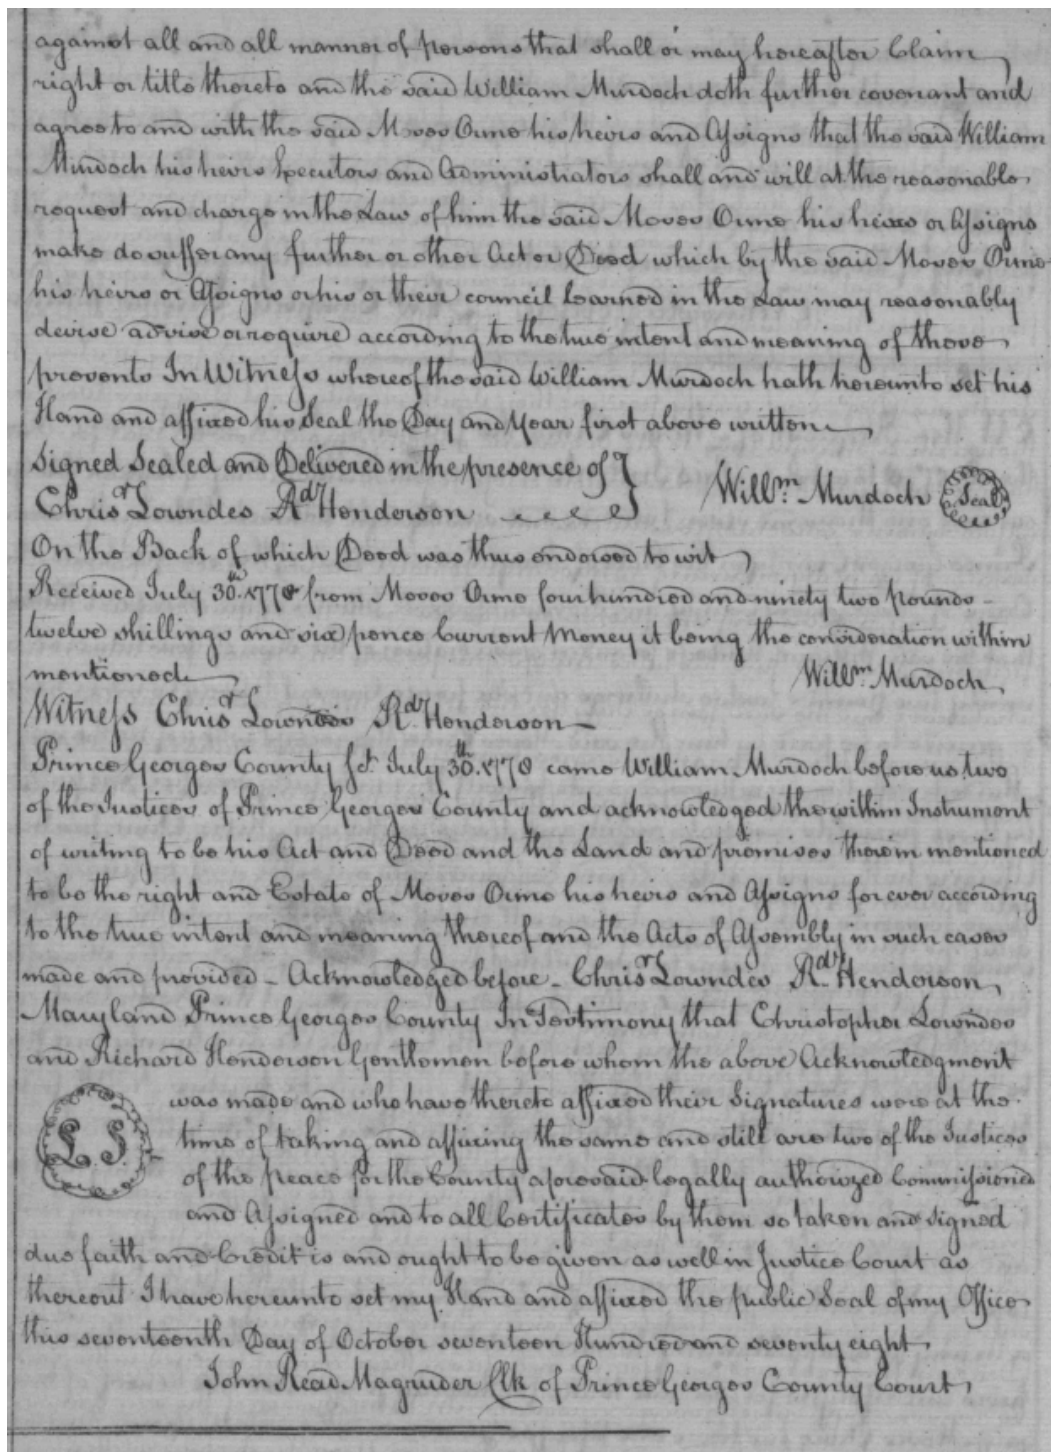 against all and all manner of persons that shall or may hereafter Claim
right or title thereto and the said William Murdoch doth further covenant and
agree to and with the said Moses Orme his heirs and Assigns that the said William
Murdoch his heirs Executors and Administrators shall and will at the reasonable
request and charge in the Law of him the said Moses Orme his heirs or Assigns
make do suffer any further or other Act or Deed which by the said Moses Orme
his heirs or Assigns or his or their council learned in the Law may reasonably
devise advise or require according to the true intent and meaning of these
presents In Witness whereof the said William Murdoch hath hereunto set his
Hand and affixed his Seal the Day and Year first above written
Signed Sealed and Delivered in the presence of
Chrisr Lowndes Rd Henderson Willm. Murdoch Seal
On the Back of which Deed was thus endorsed to wit
Received July 30th. 1778 from Moses Orme four hundred and ninety two pounds
twelve shillings and six pence Current Money it being the consideration within
mentioned Willm. Murdoch
Witness Chrisr Lowndes Rd Henderson
Prince Georges County Sct. July 30th. 1778 came William Murdoch before us two
of the Justices of Prince Georges County and acknowledged the within Instrument
of writing to be his Act and Deed and the Land and premises therein mentioned
to be the right and Estate of Moses Orme his heirs and Assigns for ever according
to the true intent and meaning thereof and the Acts of Assembly in such cases
made and provided - Acknowledged before - Chrisr Lowndes Rd Henderson
Maryland Prince Georges County In Testimony that Christopher Lowndes
and Richard Henderson Gentlemen before whom the above Acknowledgment
was made and who have thereto affixed their Signatures were at the
L.S. time of taking and affixing the same and still are two of the Justices
of the peace for the County aforesaid legally authorized Commissioned
and Assigned and to all Certificates by them so taken and signed
due faith and Credit is and ought to be given as well in Justice Court as
thereout I have hereunto set my Hand and affixed the public Seal of my Office
this seventeenth Day of October seventeen Hundred and seventy eight
John Read Magruder Clk of Prince Georges County Court